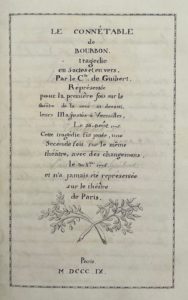 LE CONNÉTABLE
de
BOURBON.
tragédie
en 5 actes et en vers.
Par le C.te de Guibert.
Représentée
pour la première fois sur le
théâtre de la cour et devant
leurs Majestés à Versailles,
Le 26
Cette tragédie fut jouée, une
Seconde fois sur le même
théâtre, avec des changemens,
le
et n'a jamais été représentée
sur le théâtre
de Paris.
Paris
M DCCC IX.